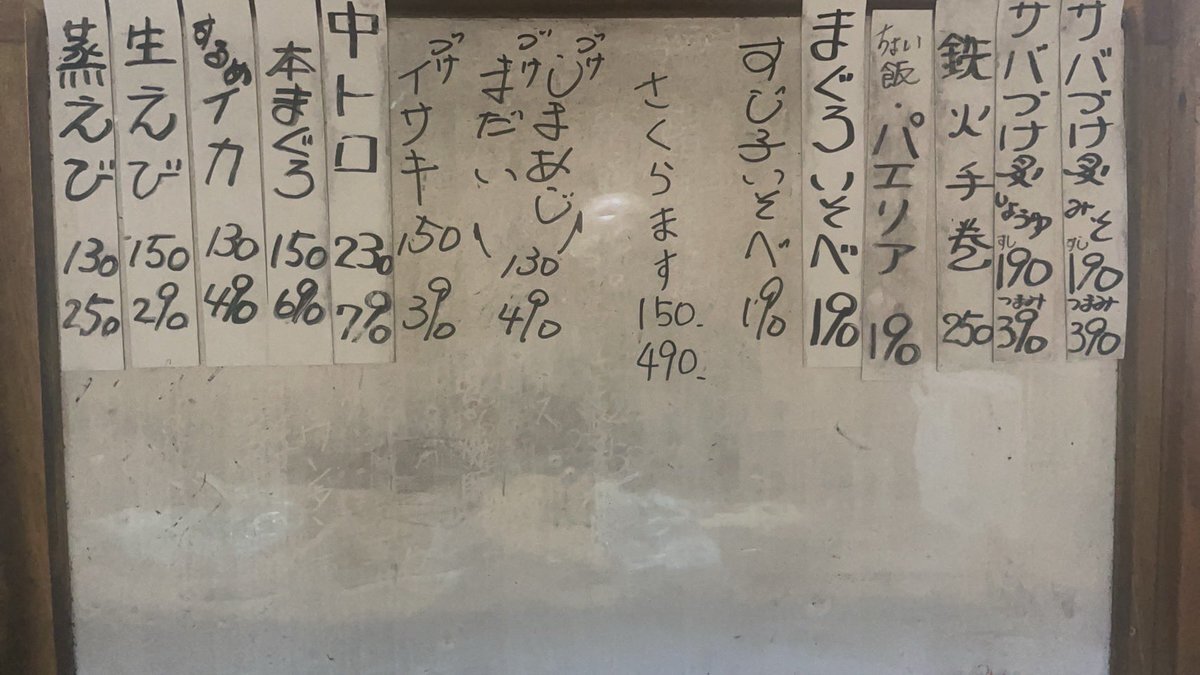 サバづけ炙みそ
すし190
つまみ390
サバづけ炙しょうゆ
すし190
つまみ390
鉄火手巻 250
ちょい飯・パエリア 190
まぐろいそべ 190
すじ子いそべ 190
さくらます 150. 490.
づけ しまあじ
づけ まだい
130 490
づけ イサキ 150 390
中トロ 230 790
本まぐろ 150 690
するめイカ 130 490
生えび 150 290
蒸えび 130 250